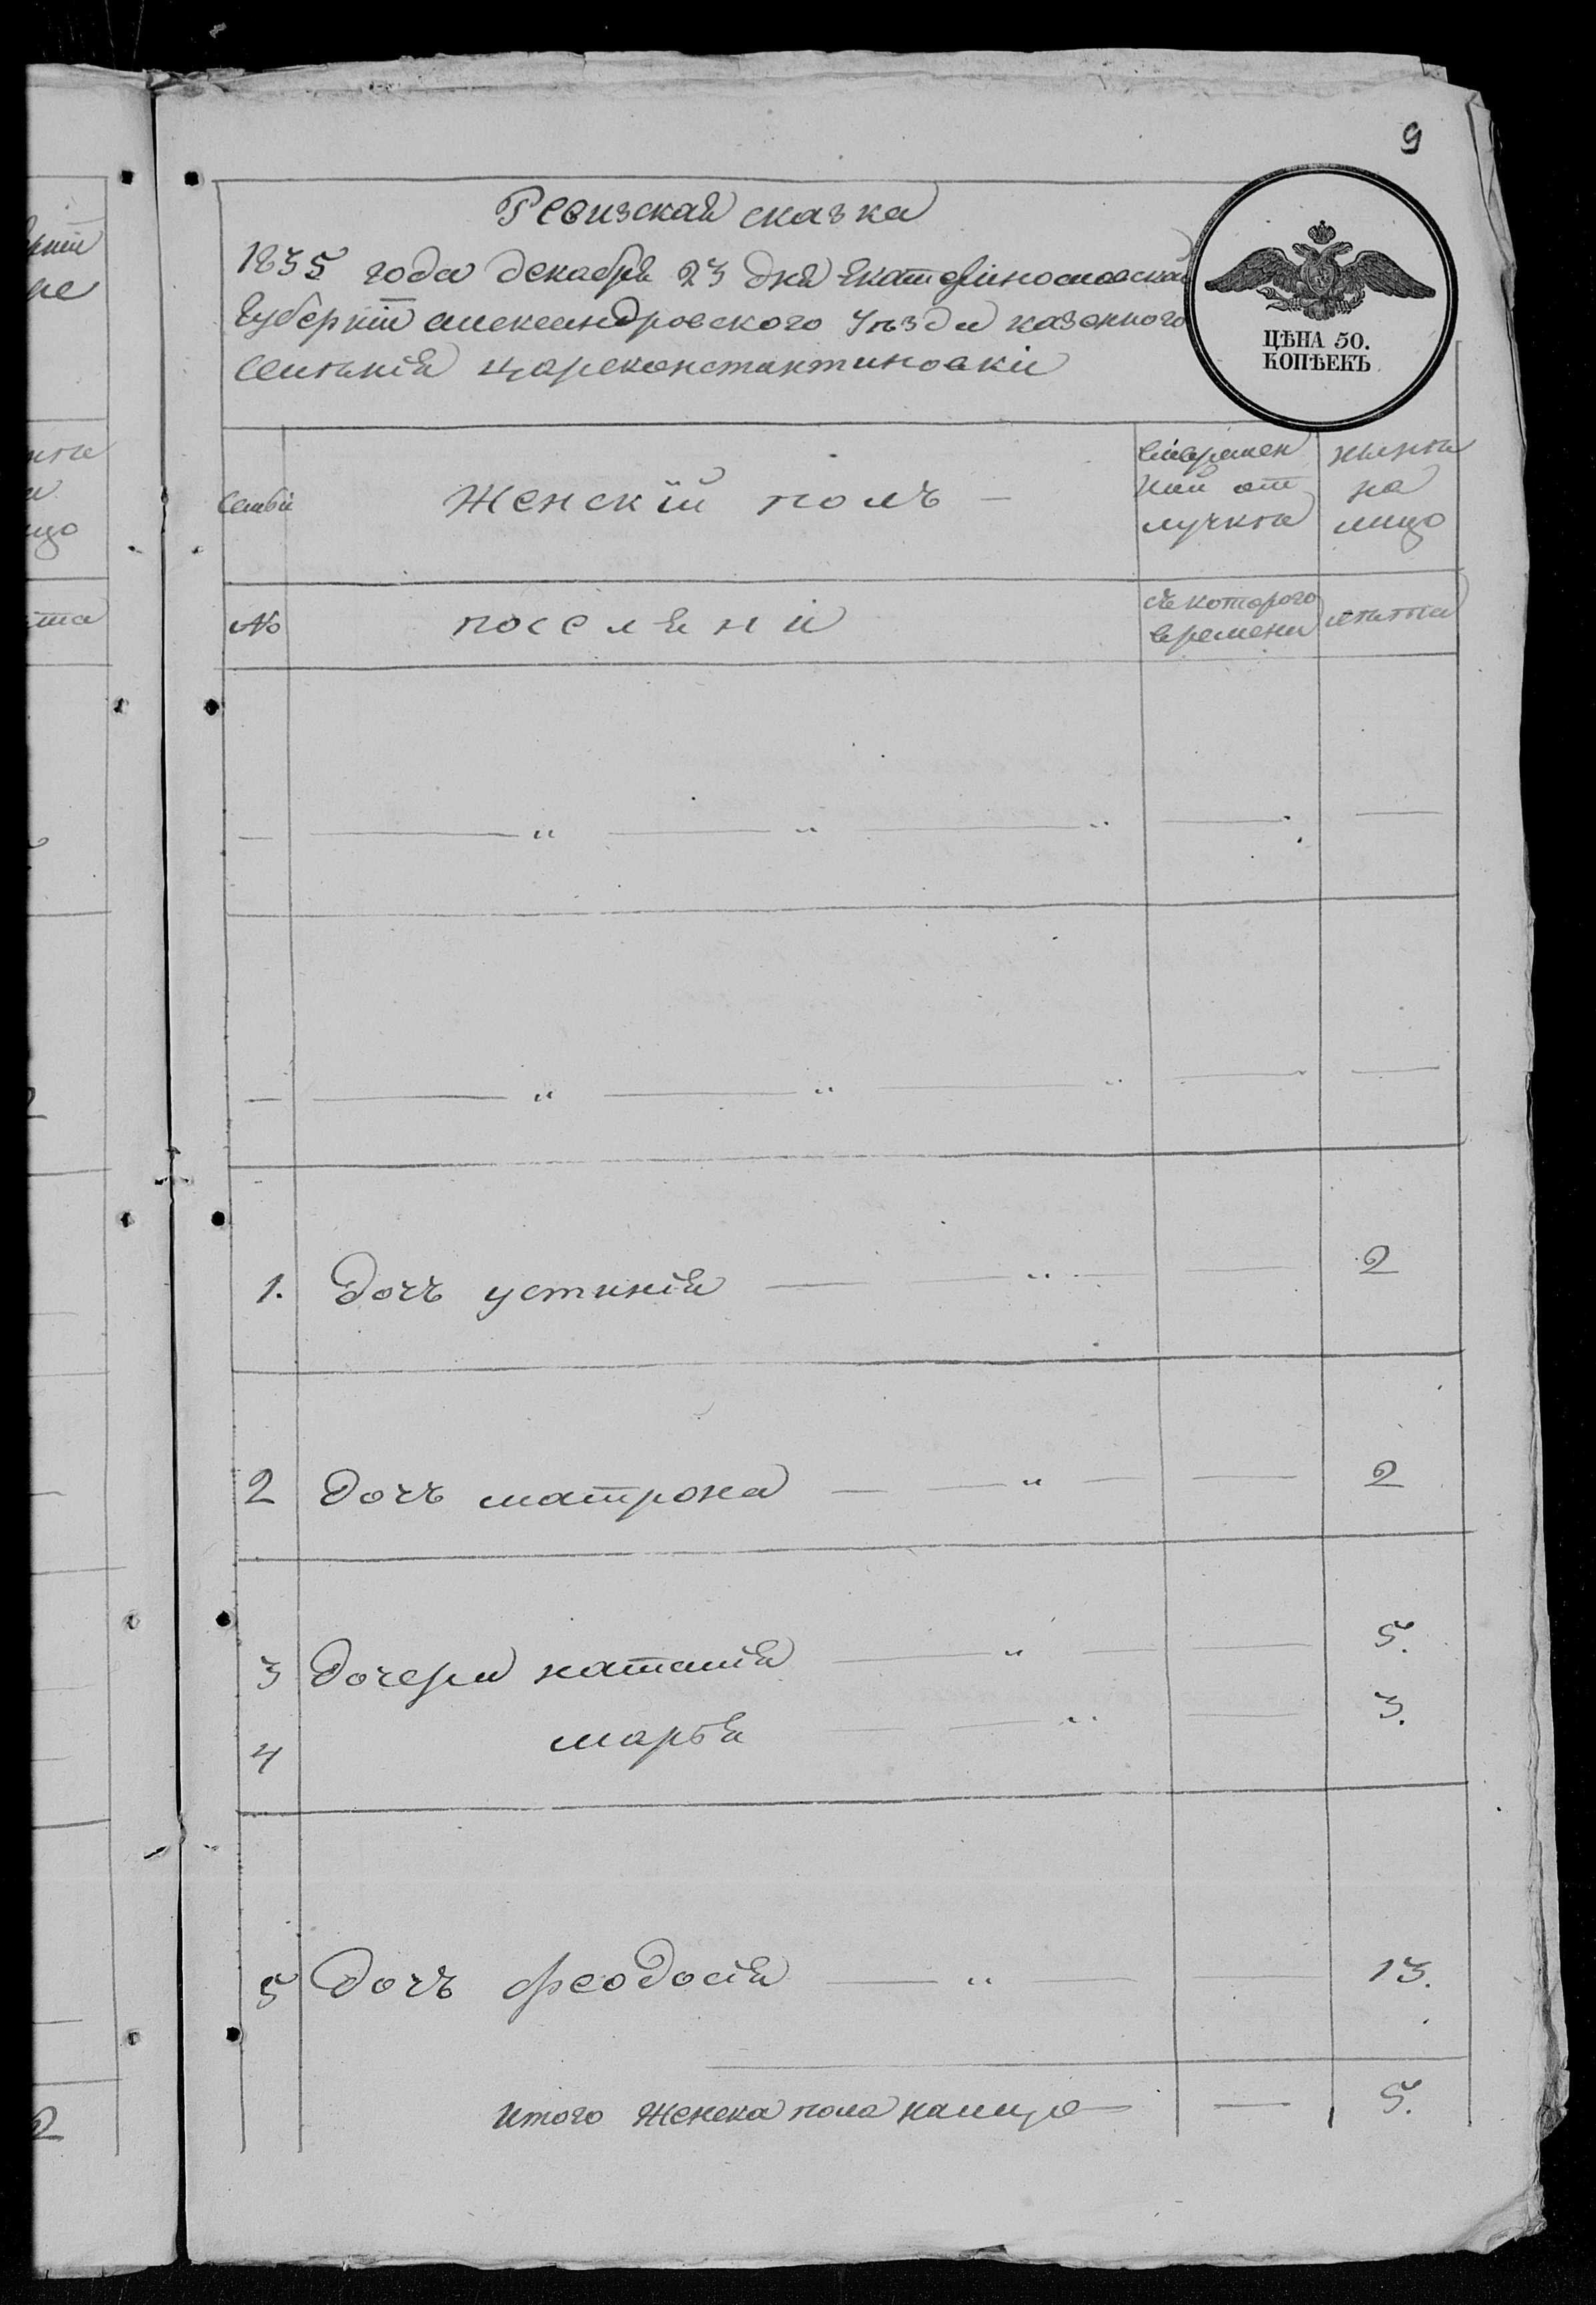 9
Ревизская сказка
1835 года декабря 23 дня екатерінославскай
губерніи александровского уѣзда казенного
селенія цареконстантиновки
ЦѢНА 50.
КОПѢЕКЪ
семьи
Женскій полъ —
вовремен
ной от
лучки
нынѣ
на
лицо
№
поселяни
съ которого
времени
лѣта
— — " — " — " — —
— — " — " — " — —
1. дочъ устинія — — " — — 2
2 дочъ матрона — — " — — 2
3 дочери наталія — " — — 5.
4 марья — — " — 3.
5 дочъ феодосія — " — — 13.
итого женска пола налицо — — 5.